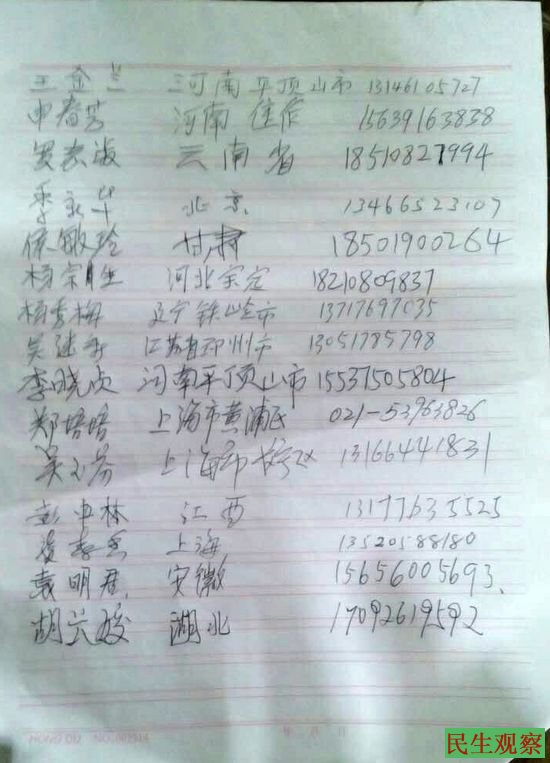 王金兰 河南平顶山市 13146105727
申春芳 河南 15639163838
云南省 18510827994
李永华 北京 13466523107
侯敏玲 甘肃 18501900264
杨宗胜 河北保定 18210809837
杨秀梅 辽宁铁岭市 13717697035
吴建 江苏省邳州市 13051785798
李晓贞 河南平顶山市 15537505804
郑培培 上海市黄浦区 021-53963826
吴玉芬 上海市 13166441831
彭中林 江西 13177635525
上海 13520588180
袁明君 安徽 15656005693
胡兴姣 湖北 17092619592
民生观察